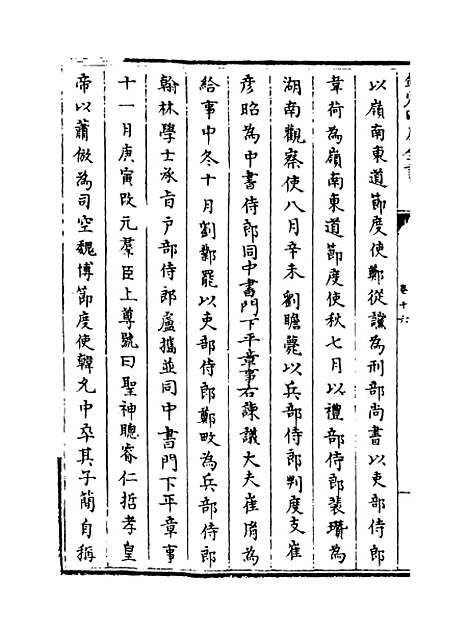 欽定四庫全書
卷十六
以嶺南東道節度使鄭從讜為刑部尚書以吏部侍郎
韋荷為嶺南東道節度使秋七月以禮部侍郎裴瓚為
湖南觀察使八月辛未劉瞻薨以兵部侍郎判度支崔
彦昭為中書侍郎同中書門下平章事右諫議大夫崔㴞為
給事中冬十月劉鄴罷以吏部侍郎鄭畋為兵部侍郎
翰林學士承旨户部侍郎盧攜並同中書門下平章事
十一月庚寅改元羣臣上尊號曰聖神聰睿仁哲孝皇
帝以蕭倣為司空魏博節度使韓允中卒其子簡自稱